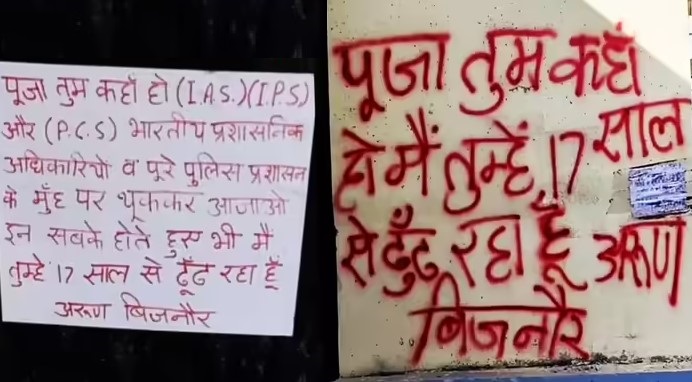 पूजा तुम कहाँ हो (I.A.S.)(I.P.S)
और (P.C.S) भारतीय प्रशासनिक
अधिकारियो व पूरे पुलिस प्रशासन
के मुँह पर थूककर आजाओ
इन सबके होते हुए भी मै
तुम्हे 17 साल से ढूँढ रहा हूँ
अरूण बिजनौर
पूजा तुम कहाँ
हो मैं तुम्हें 17 साल
से ढुँढ रहा हूँ अरूण
बिजनौर